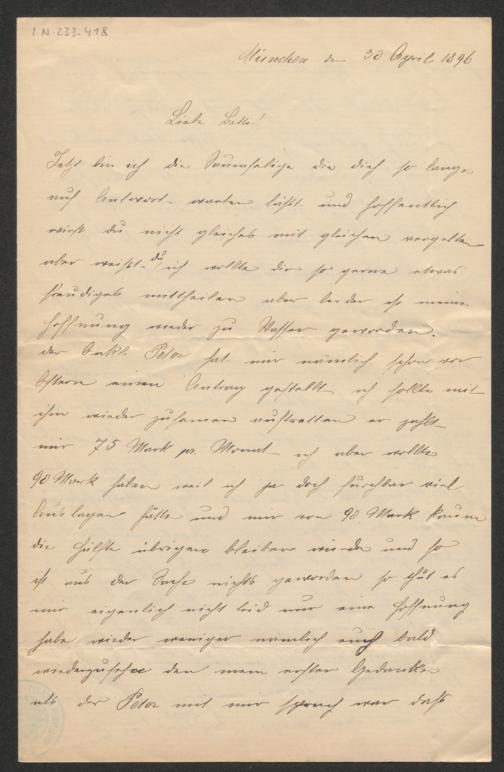 I.N. 233.418
München den 30 April 1896
Liebe Betti!
Jetzt bin ich die Saumselige die dich so lange
auf Antwort warten läßt und hoffentlich
wirst du nicht gleiches mit gleichen vergelten
aber weißt du ich wollte dir so gerne etwas
freudiges mittheilen aber leider ist meine
Hoffnung wieder zu Wasser geworden.
der Peter hat mir nämlich schon vor
Ostern einen Antrag gestellt ich sollte mit
ihm wieder zusamen auftretten er zahlt
mir 75 Mark pr. Monat ich aber wollte
90 Mark haben weil ich ja doch furchtbar viel
Auslagen hätte und mir von 90 Mark kaum
die Hälfte übrigens bleiben würde und so
ist aus der Sache nichts geworden so thut es
mir eigenlich nicht leid nur eine Hoffnung
habe wieder weniger nämlich euch bald
wiederzusehen den mein erster Gedanke
als der Peter mit mir sprach war daß